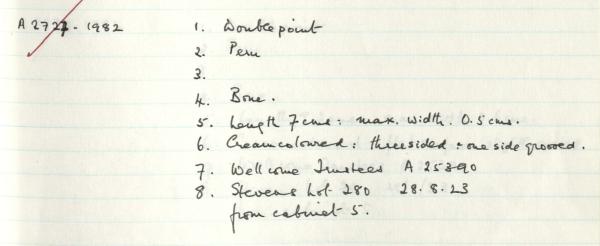 A 2727 - 1982 1. Double point
2. Peru
3.
4. Bone.
5. Length 7 cms : max. width. 0.5 cms.
6. Cream coloured : three sided : one side grooved.
7. Wellcome Trustees A 25890
8. Stevens Lot 280 28.8.23
from cabinet 5.